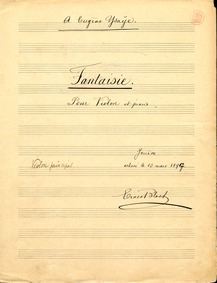 A Eugène Ysaÿe.
Fantaisie.
Pour Violon et piano
Violon principal
Genève
le 13 mars 1897
Ernest Bloch